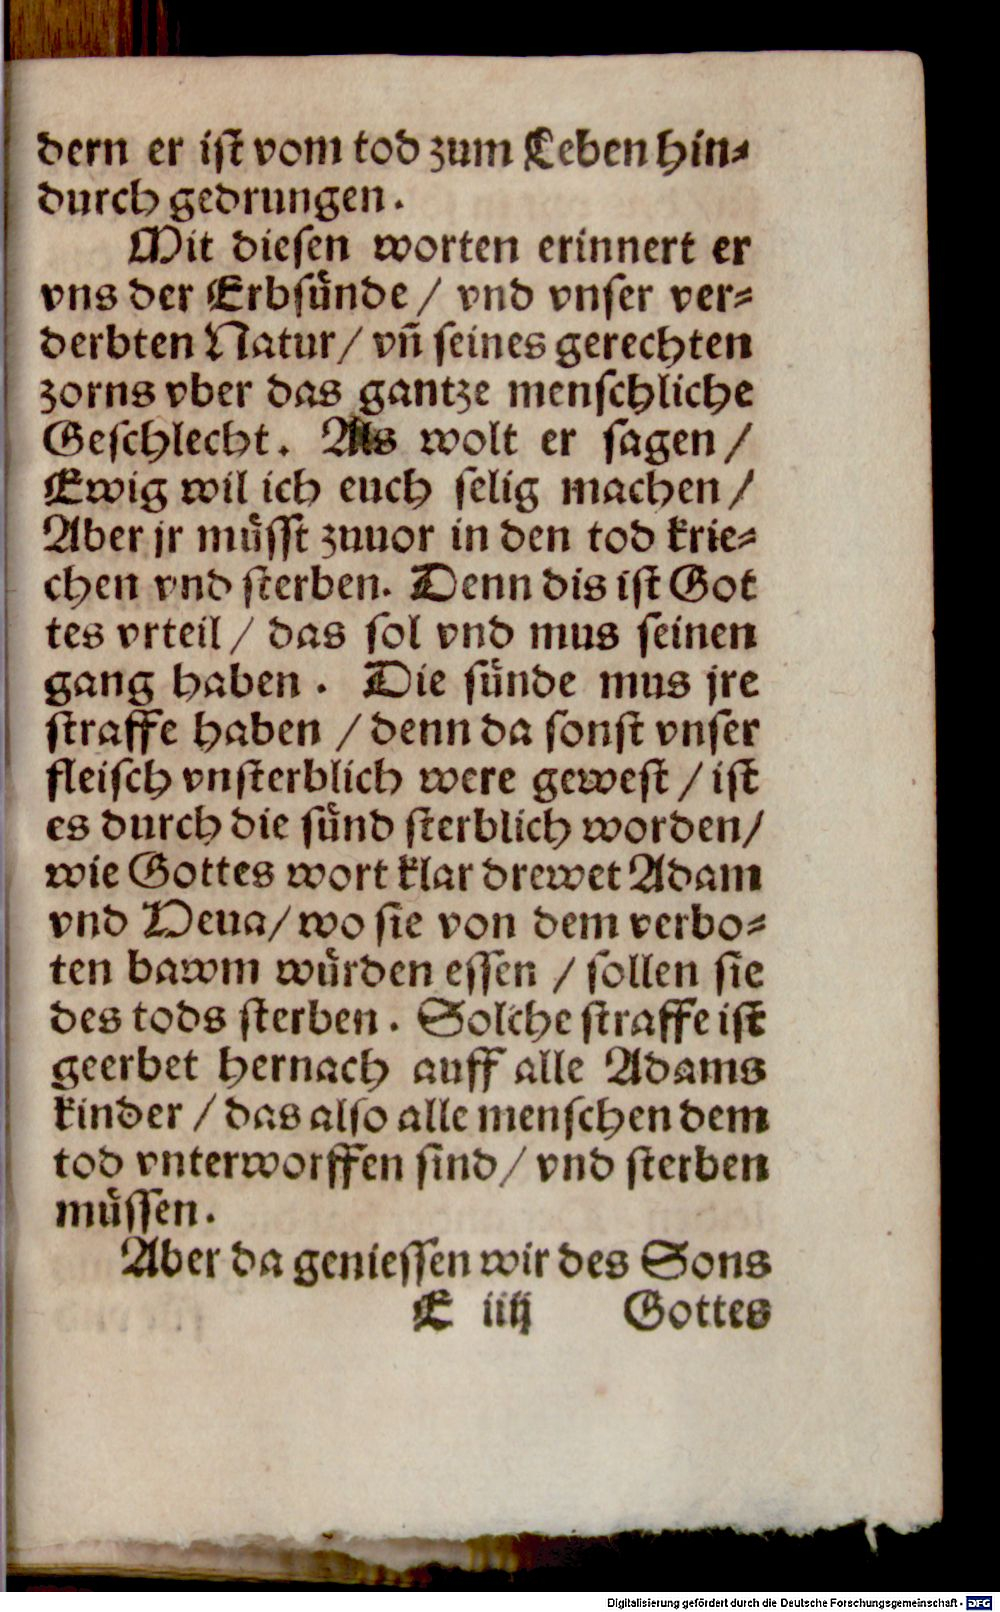 dern er iſt vom tod zum Leben hin⸗
durch gedrungen.
Mit dieſen worten erinnert er
vns der Erbſuͤnde / vnd vnſer ver⸗
derbten Natur / vñ ſeines gerechten
zorns vber das gantze menſchliche
Geſchlecht. Als wolt er ſagen /
Ewig wil ich euch ſelig machen /
Aber jr muͤſſt zuuor in den tod krie⸗
chen vnd ſterben. Denn dis iſt Got
tes vrteil / das ſol vnd mus ſeinen
gang haben. Die ſuͤnde mus jre
ſtraffe haben / denn da ſonſt vnſer
fleiſch vnſterblich were geweſt / iſt
es durch die ſuͤnd ſterblich worden /
wie Gottes wort klar drewet Adam
vnd Heua / wo ſie von dem verbo⸗
ten bawm wuͤrden eſſen / ſollen ſie
des tods ſterben. Solche ſtraffe iſt
geerbet hernach auff alle Adams
kinder / das alſo alle menſchen dem
tod vnterworffen ſind / vnd ſterben
muͤſſen.
Aber da genieſſen wir des Sons
E iiij Gottes
Digitalisierung gefördert durch die Deutsche Forschungsgemeinschaft - DFG